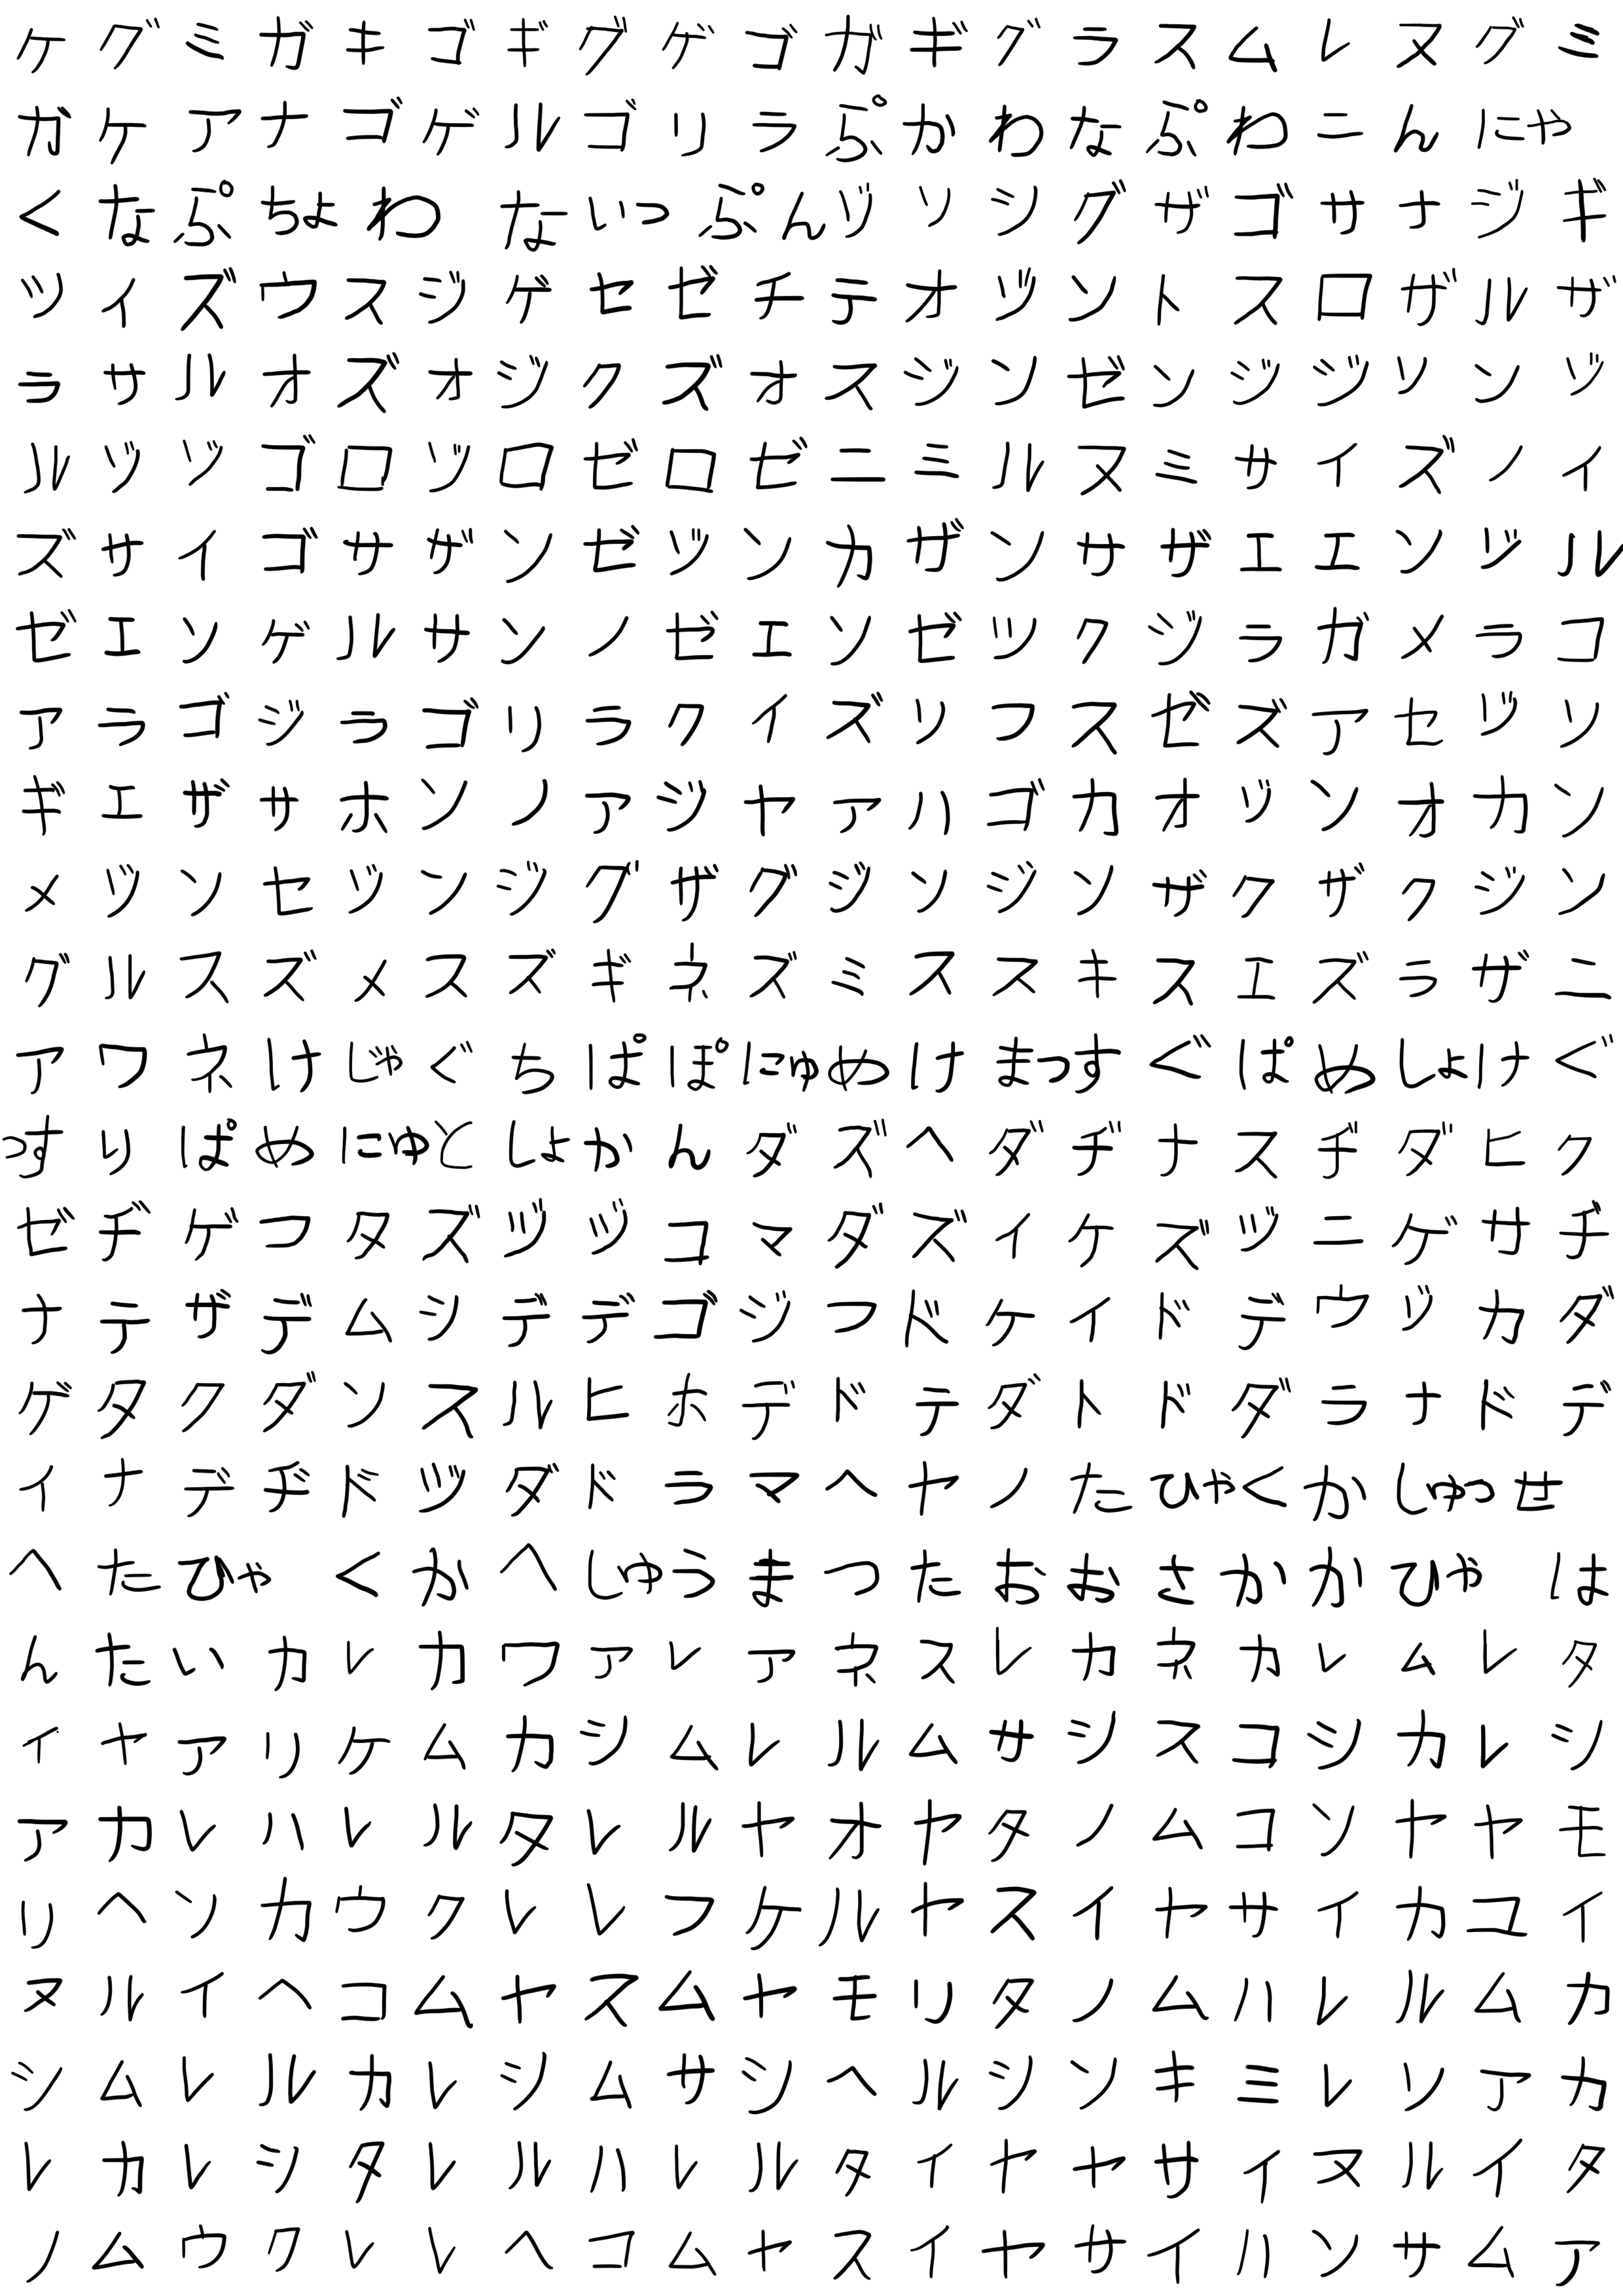 ケグミガキゴギグゲゴガギグラスムレヌグミ
ガケアナゴゲルゴリラぷかわなぷわニんにゃ
くなぷちょわないっぷんゾソシグザゴサナジギ
ツイズウスジゲセゼチテオゾントスロザルザ
ラサルオズオジクズオスジンゼンジジソンゾ
ルゾゾゴロゾロゼロゼニミルヌミサイズノイ
ズサイゴサザンゼツンカザンサザエエンジル
ゼエソゲルサンノゼエソゼツクジラガメラコ
アラゴジラゴリラクイズリフスゼズアセヅソ
ギエザサホンノアジヤァハゴカオゾンオカン
メゾンセゾンジグザグジンジンザクザクジン
グルスズメスズギネズミススキスエズラザニ
アワネけじゃぐちぱぽにゅめけまっすぐぱぬしょけぐ
っすりぱぬにゅどしょかんダズヘダヂナスヂダヒク
ゼヂゲフタズヅヅコマダズイケズヅニゲサチ
ナテザデムシデデゴジフドケイドデウヅカダ
ゲタクダンスルヒホデドテダトドダラナドデ
イナデヂドヅダドラマヘヤノたひゃくかしゅっせ
へたひゃくかへしゅうまつたおおさかかひゃは
んたいカレカワァレァネスレカネカレムレタ
イヤアリケムカシムレルムサシスコシカレシ
アカレハレルタレルヤオヤタノムコンヤヤモ
リヘンカウクレレフケルヤスイヤサイカユイ
ヌルイヘコムヤスムヤモリタノムハレルムカ
シムレルカレシムサシヘルシンキミレソアカ
レカレシタレルハレルタイヤヤサイヌルイタ
ノムウクレレヘコムヤスイヤサイハンサムア